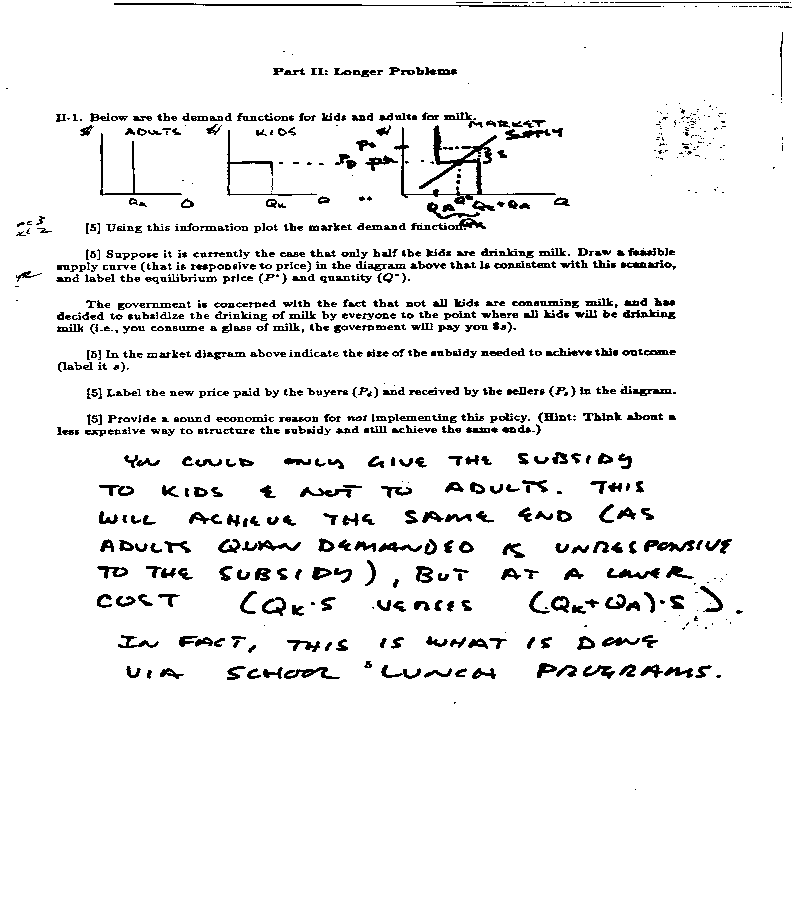 Part II: Longer Problems
II-1. Below are the demand functions for kids and adults for milk.
$/ ADULTS $/ KIDS $/ MARKET
SUPPLY
Ps
PD P*
s
QA Q QK Q QA Q* QK+QA Q
QK
[5] Using this information plot the market demand function.
[5] Suppose it is currently the case that only half the kids are drinking milk. Draw a feasible
supply curve (that is responsive to price) in the diagram above that is consistent with this scenario,
and label the equilibrium price (P*) and quantity (Q*).
The government is concerned with the fact that not all kids are consuming milk, and has
decided to subsidize the drinking of milk by everyone to the point where all kids will be drinking
milk (i.e., you consume a glass of milk, the government will pay you $s).
[5] In the market diagram above indicate the size of the subsidy needed to achieve this outcome
(label it s).
[5] Label the new price paid by the buyers (Pd) and received by the sellers (Ps) in the diagram.
[5] Provide a sound economic reason for not implementing this policy. (Hint: Think about a
less expensive way to structure the subsidy and still achieve the same ends.)
YOU COULD ONLY GIVE THE SUBSIDY
TO KIDS & NOT TO ADULTS. THIS
WILL ACHIEVE THE SAME END (AS
ADULTS QUAN DEMANDED IS UNRESPONSIVE
TO THE SUBSIDY), BUT AT A LOWER
COST (QK·S VERSES (QK+QA)·S).
IN FACT, THIS IS WHAT IS DONE
VIA SCHOOL LUNCH PROGRAMS.